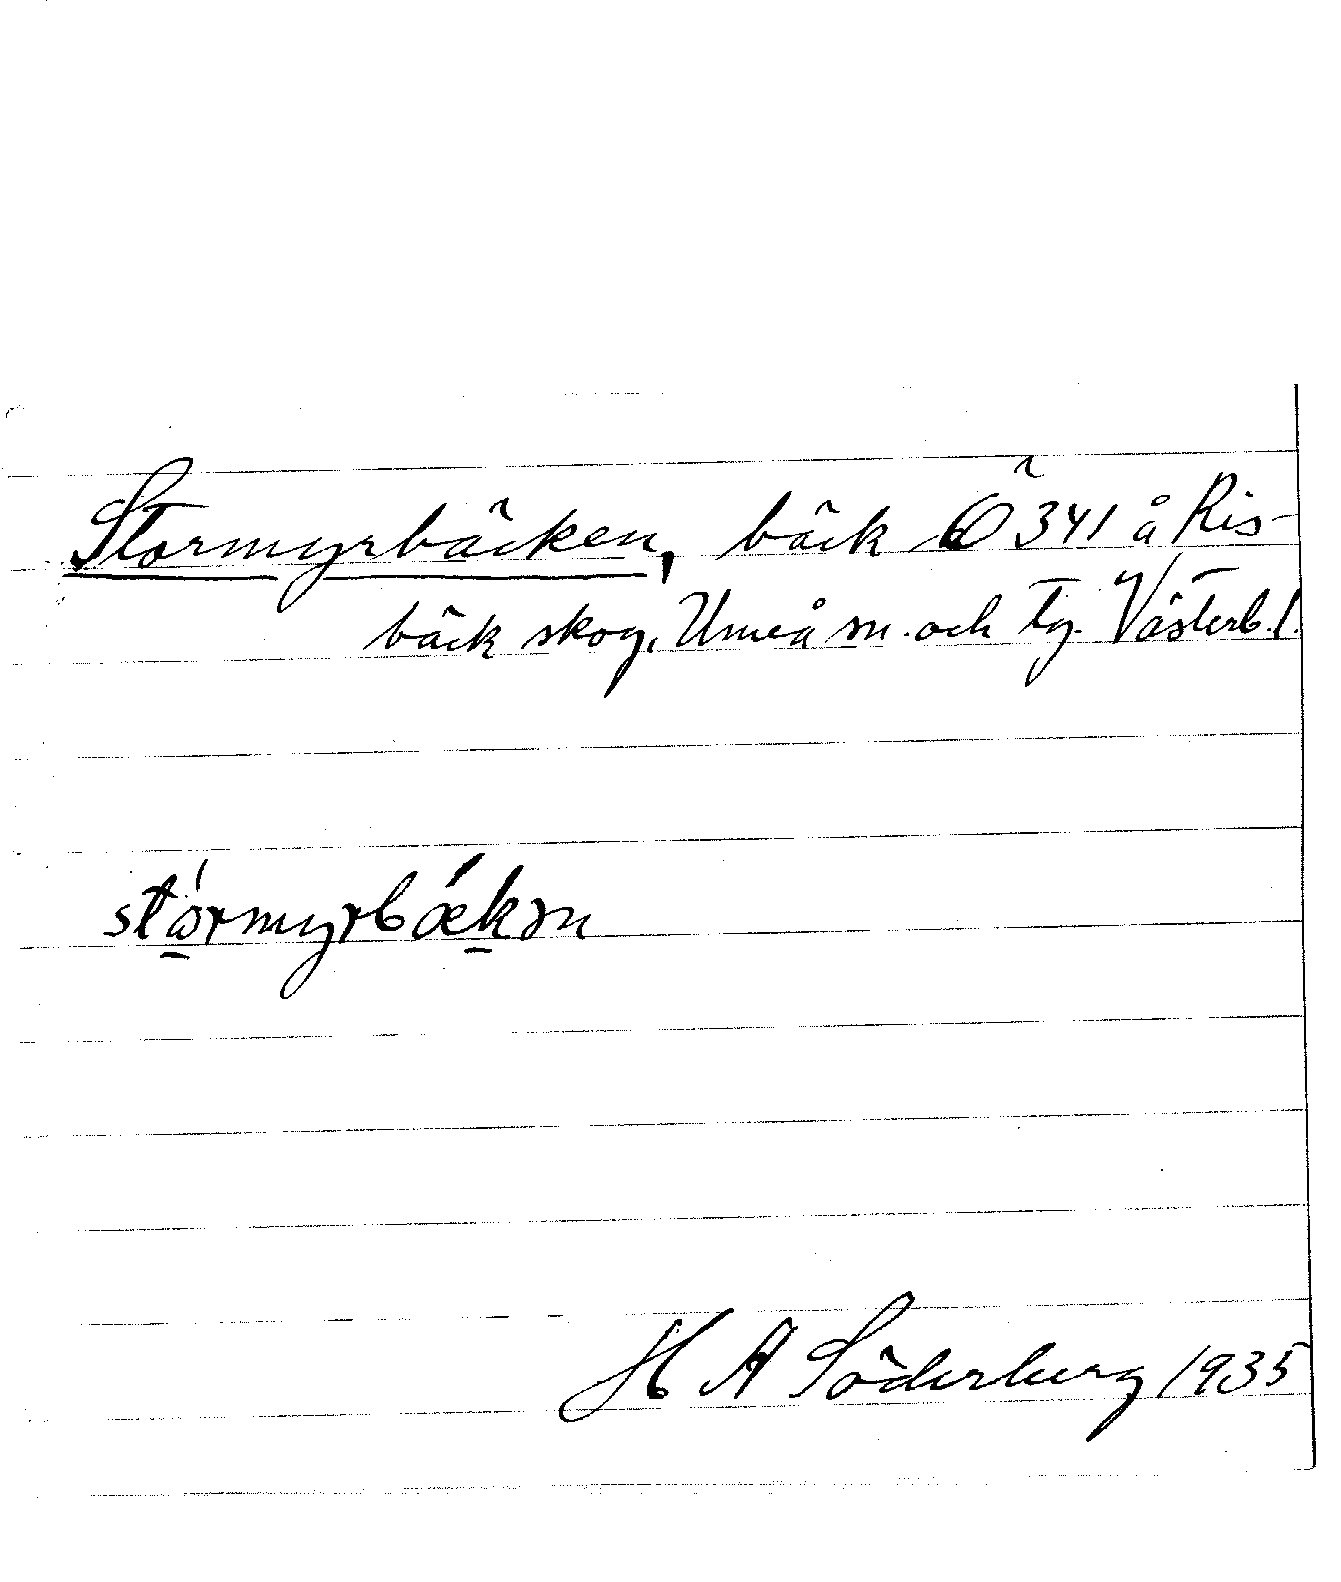 Stormyrbäcken, bäck Ö 341 å Ris-
bäck skog, Umeå sn. och tg. Västerb. l.
stórmyrbǽkən
H A Söderberg 1935